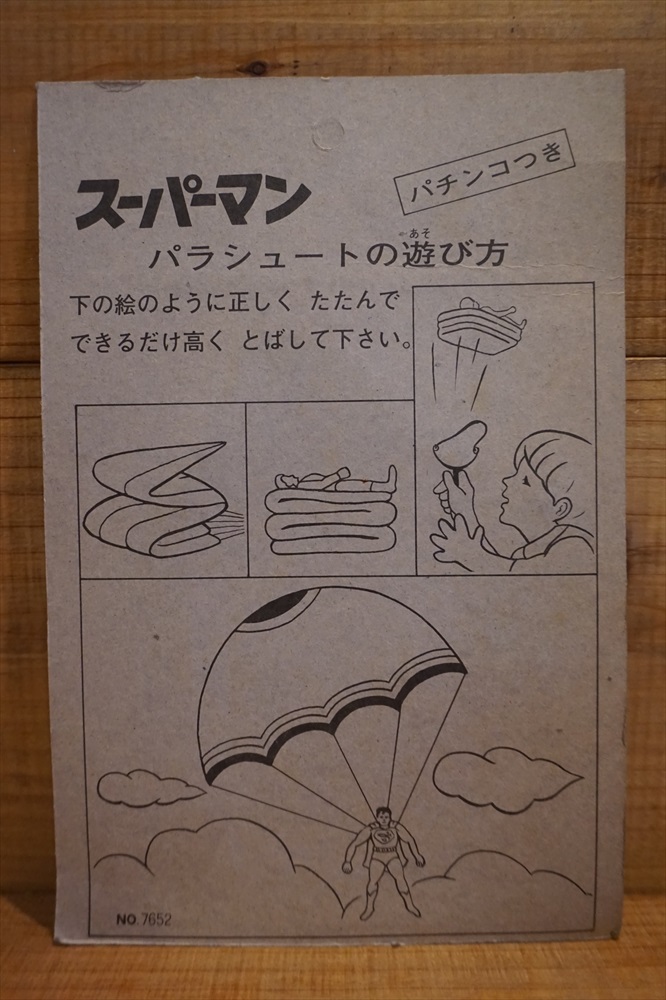 スーパーマン
パチンコつき
あそ
パラシュートの遊び方
下の絵のように正しく たたんで
できるだけ高く とばして下さい。
NO.7652